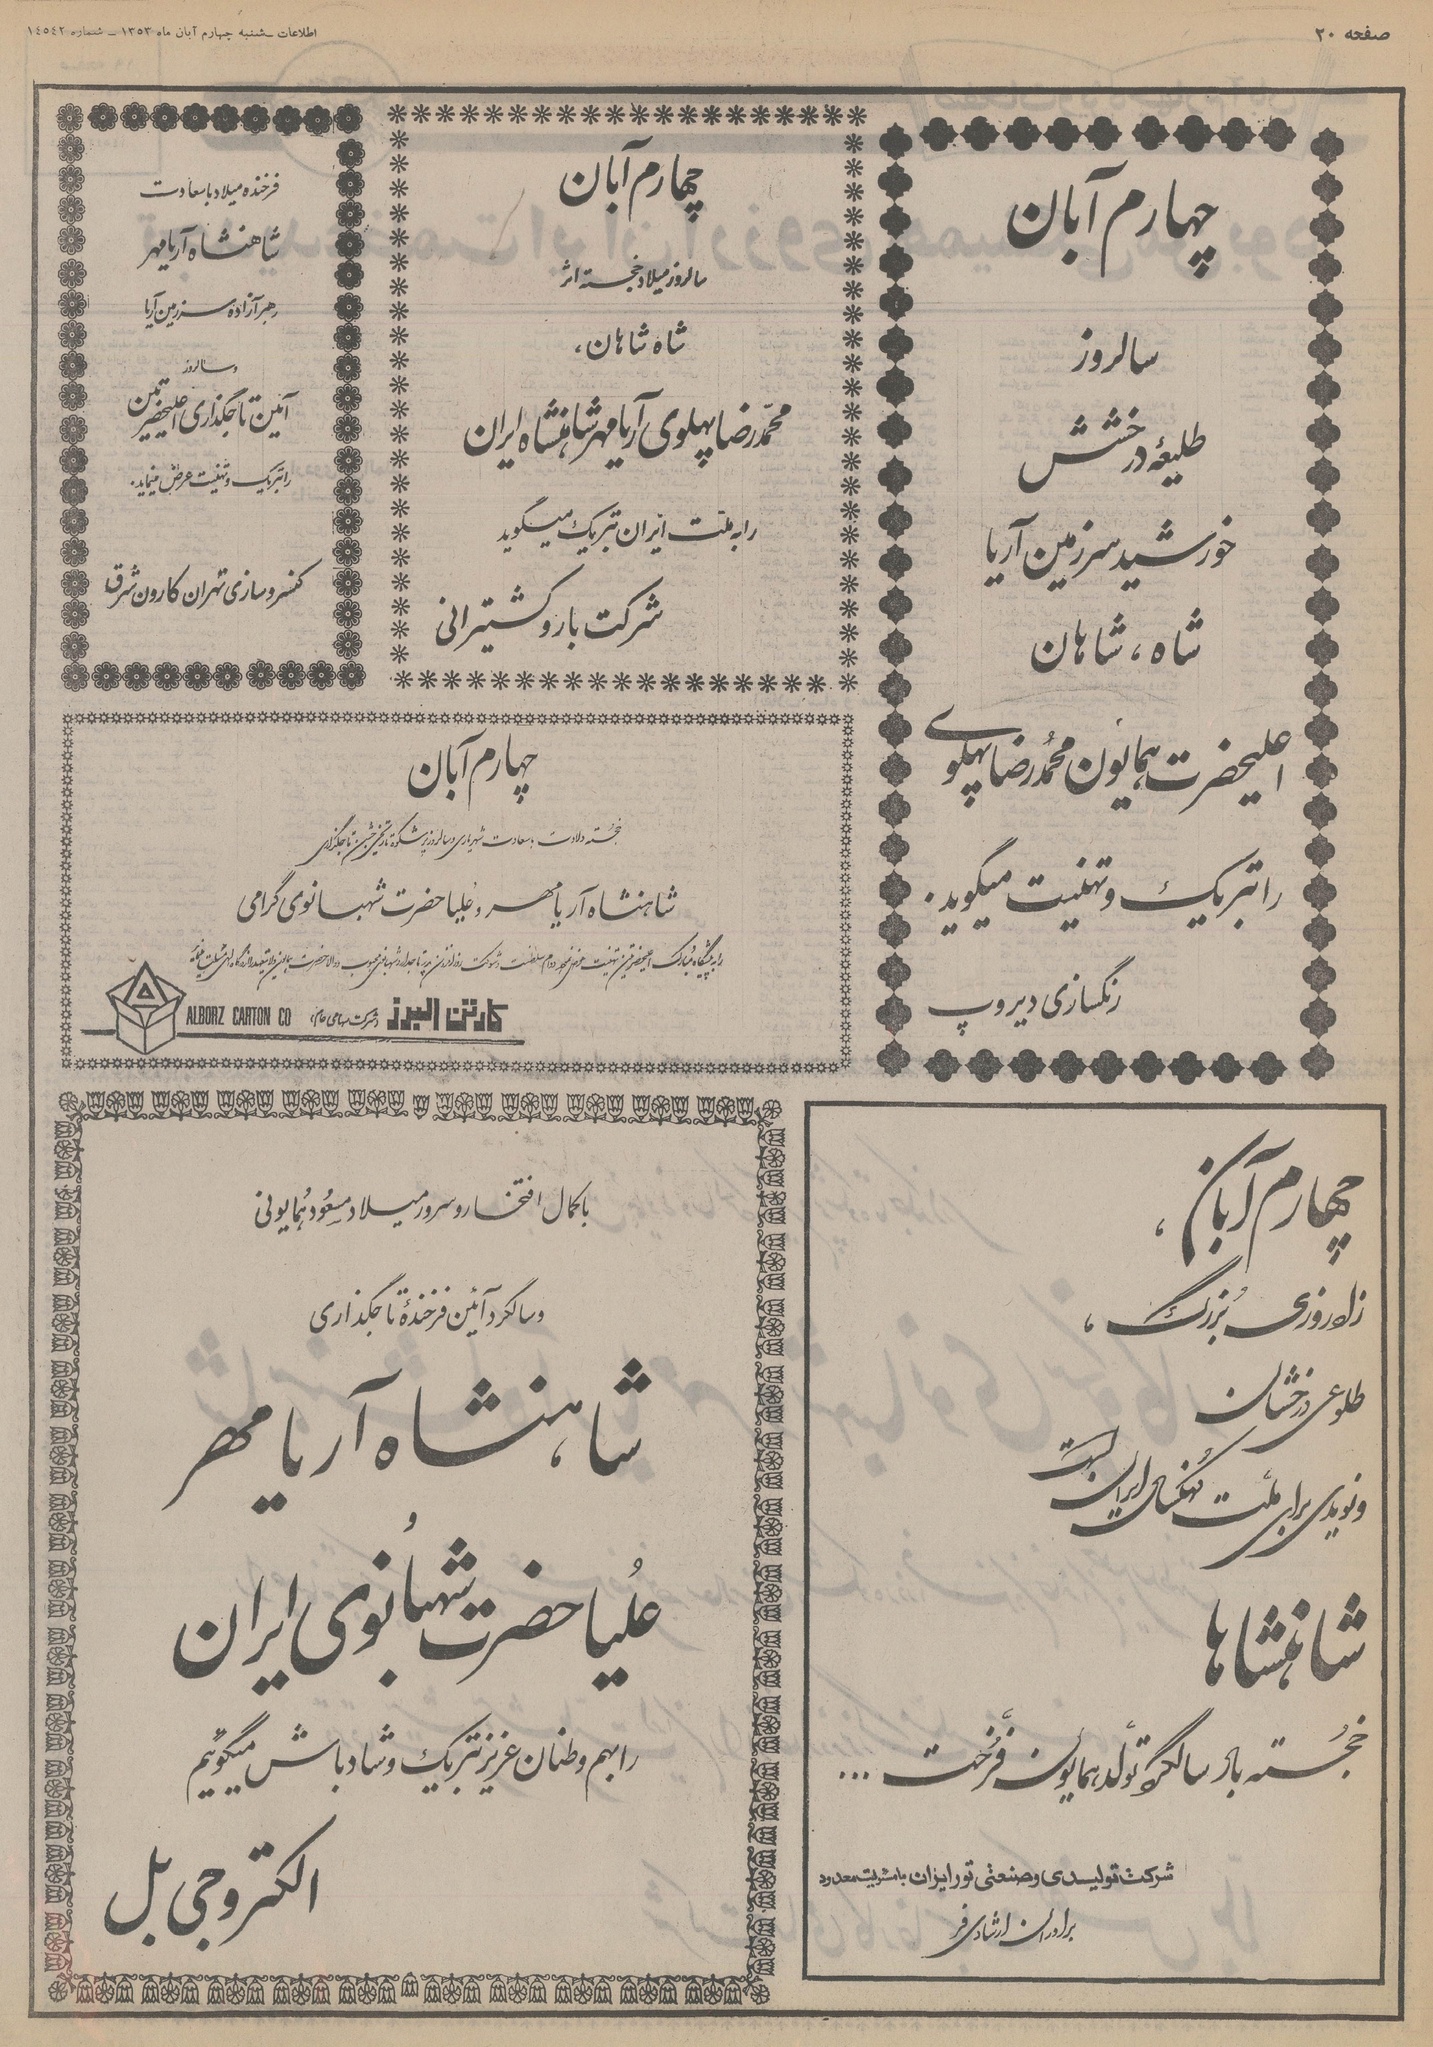 صفحه ۲۰
اطلاعات ـ شنبه چهارم آبان ماه ۱۳۵۳ ـ شماره ۱۴۵۴۲
چهارم آبان
سالروز
طلیعهٔ درخشش
خورشید سرزمین آریا
شاه ، شاهان
اعلیحضرت همایون محمدرضا پهلوی
را تبریک و تهنیت میگوید .
رنگسازی دیروپ
چهارم آبان
سالروز میلاد خجسته اثر
شاه شاهان ،
محمدرضا پهلوی آریامهر شاهنشاه ایران
را به ملت ایران تبریک میگوید
شرکت بار و کشتیرانی
فرخنده میلاد با سعادت
شاهنشاه آریامهر
رهبر آزاده سرزمین آریا
و سالروز
آئین تاجگذاری اعلیحضرتین
را تبریک و تهنیت عرض مینماید .
کنسروسازی تهران کارون شرق
چهارم آبان
خجسته ولادت با سعادت شهریاری و سالروز پرشکوه تاریخی جشن تاجگذاری
شاهنشاه آریامهر و علیاحضرت شهبانوی گرامی
را به پیشگاه مبارک اعلیحضرتین تهنیت
کارتن البرز (شرکت سهامی عام) ALBORZ CARTON CO
چهارم آبان ،
زادروزی بزرگ ،
طلوعی درخشان
و نویدی برای ملت کهنسال ایران است
شاهنشاها
خجسته باد سالگرد تولد همایون فرخت ...
شرکت تولیدی و صنعتی تور ایران با مسئولیت محدود
برادران ارشادی فر
با کمال افتخار و سرور میلاد مسعود همایونی
و سالگرد آئین فرخندهٔ تاجگذاری
شاهنشاه آریامهر
علیاحضرت شهبانوی ایران
را بهم وطنان عزیز تبریک و شادباش میگوئیم
الکتروجی بل